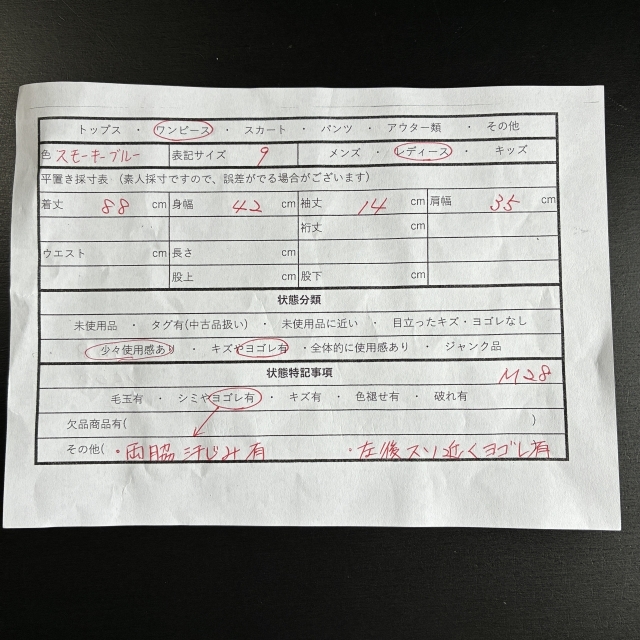 トップス ・ ワンピース ・ スカート ・ パンツ ・ アウター類 ・ その他
色 スモーキーブルー 表記サイズ 9 メンズ ・ レディース ・ キッズ
平置き採寸表 (素人採寸ですので、誤差がでる場合がございます)
着丈 88 cm 身幅 42 cm 袖丈 14 cm 肩幅 35 cm
裄丈
ウエスト cm 長さ cm
股上 cm 股下 cm
状態分類
未使用品 ・ タグ有(中古品扱い) ・ 未使用品に近い ・ 目立ったキズ・ヨゴレなし
少々使用感あり ・ キズやヨゴレ有 ・全体的に使用感あり ・ ジャンク品
状態特記事項 M28
毛玉有 ・ シミやヨゴレ有 ・ キズ有 ・ 色褪せ有 ・ 破れ有
欠品商品有( )
その他( ・両脇汗じみ有 ・左後スソ近くヨゴレ有